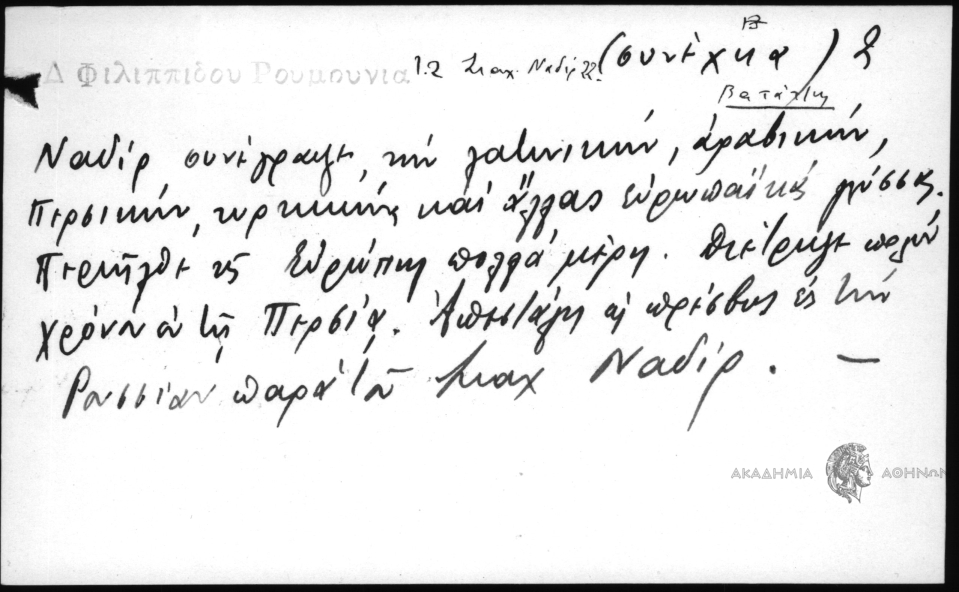 Δ Φιλιππίδου Ρουμουνία 1.2 Σιαχ. Ναδίρ 22. (συνέχεια) 2
Βατάτζης
Ναδίρ συνέγραψε, την λατινικήν, ἀραβικήν,
Περσικήν, τυρκικήν καί ἄλλας εὐρωπαϊκάς γλώσσας.
Περιῆλθε τῆς Εὐρώπης πολλά μέρη. Διέτριψε πολύν
χρόνον ἐν τῇ Περσίᾳ. Ἀπεστάλη ὡς πρέσβυς εἰς τήν
Ρουσσίαν παρά τοῦ Σιαχ Ναδίρ. —
ΑΚΑΔΗΜΙΑ ΑΘΗΝΩΝ